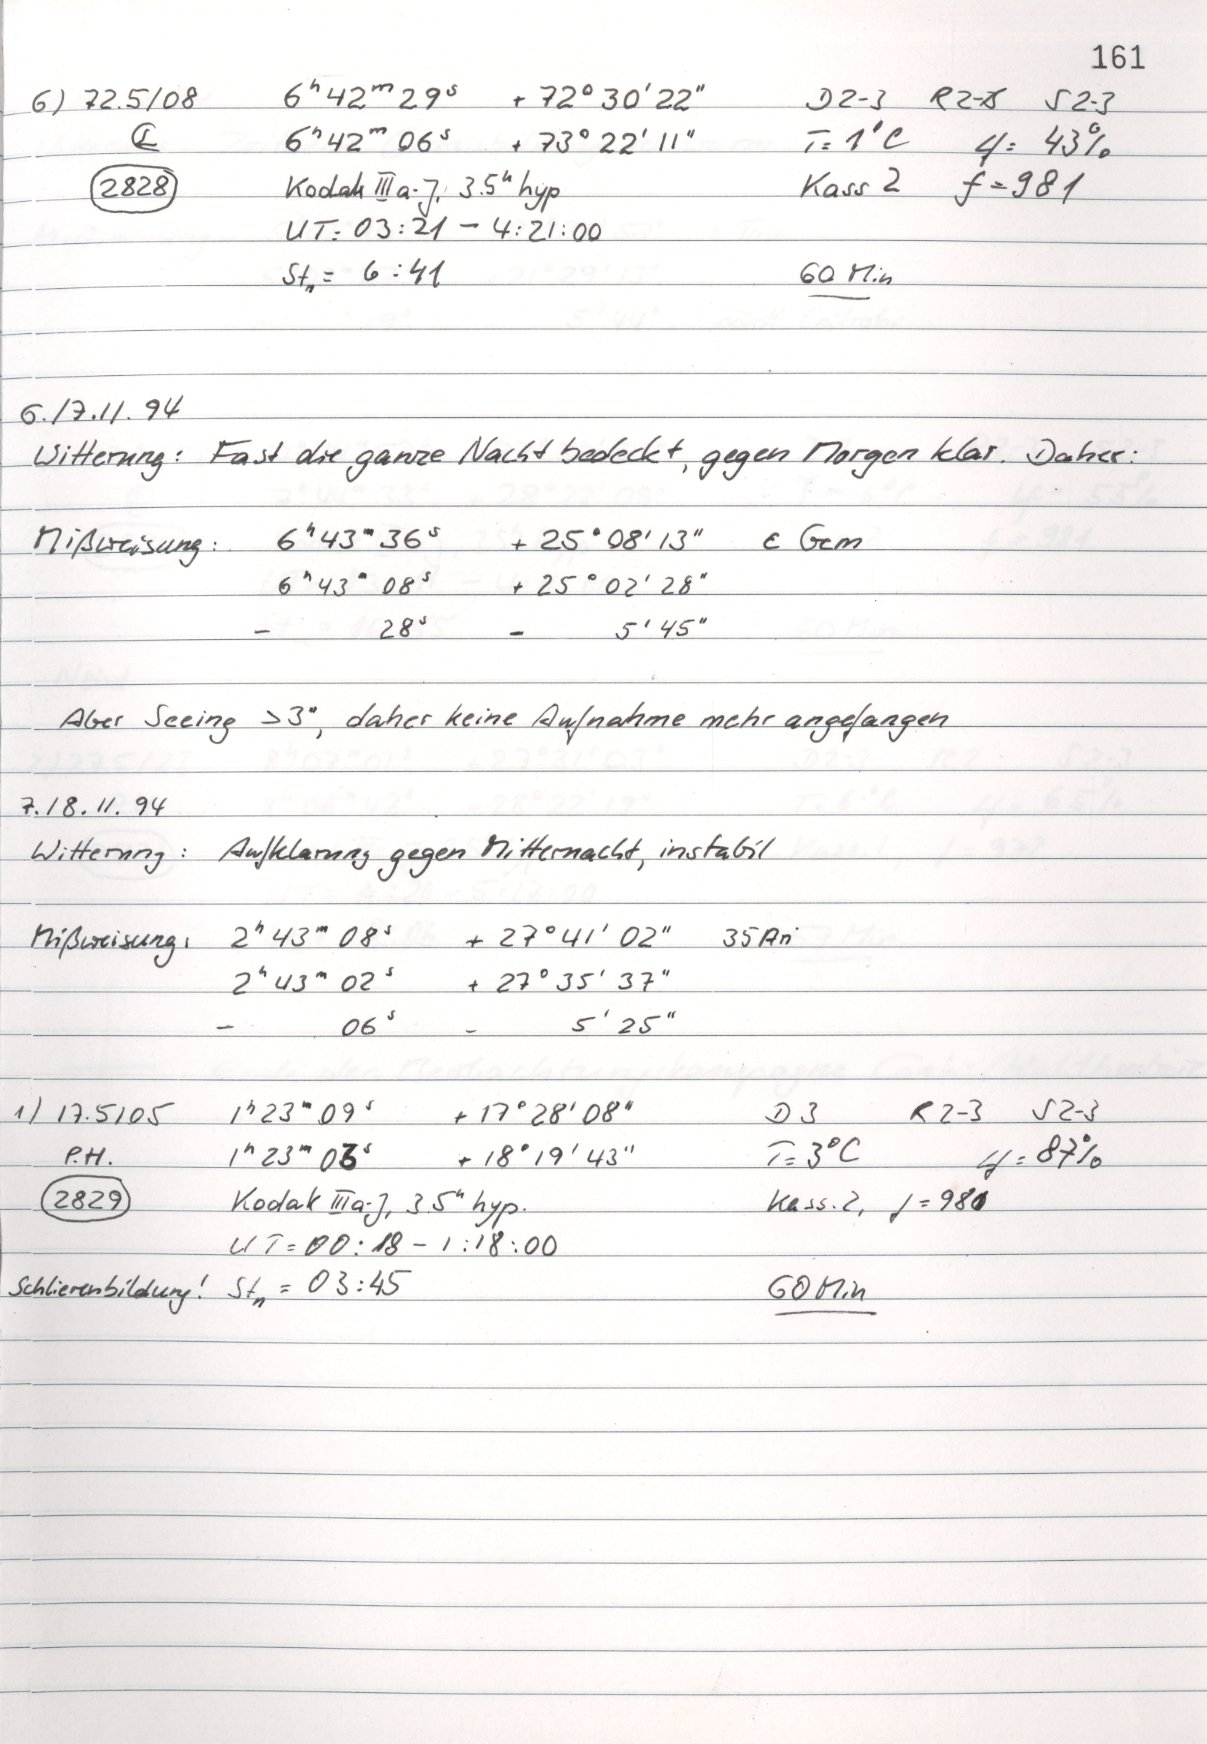 161
6) 72.5/08 6ʰ42ᵐ29ˢ +72°30'22" D2-3 R2-3 S2-3
6ʰ42ᵐ06ˢ +73°22'11" T=1°C φ=43%
2828 Kodak IIIa-J, 3.5ʰ hyp Kass 2 f=981
UT: 03:21 - 4:21:00
Stₙ = 6:41 60 Min
6./7.11.94
Witterung: Fast die ganze Nacht bedeckt, gegen Morgen klar. Daher:
Mißweisung: 6ʰ43ᵐ36ˢ +25°08'13" ε Gem
6ʰ43ᵐ08ˢ +25°02'28"
- 28ˢ - 5'45"
Aber Seeing >3", daher keine Aufnahme mehr angefangen
7./8.11.94
Witterung: Aufklarung gegen Mitternacht, instabil
Mißweisung: 2ʰ43ᵐ08ˢ +27°41'02" 35 Ari
2ʰ43ᵐ02ˢ +27°35'37"
- 06ˢ - 5'25"
1) 17.5/05 1ʰ23ᵐ09ˢ +17°28'08" D3 R2-3 S2-3
P.H. 1ʰ23ᵐ03ˢ +18°19'43" T=3°C φ=87%
2829 Kodak IIIa-J, 3.5ʰ hyp. Kass. 2, f=980
UT=00:18 - 1:18:00
Schlierenbildung! Stₙ = 03:45 60 Min